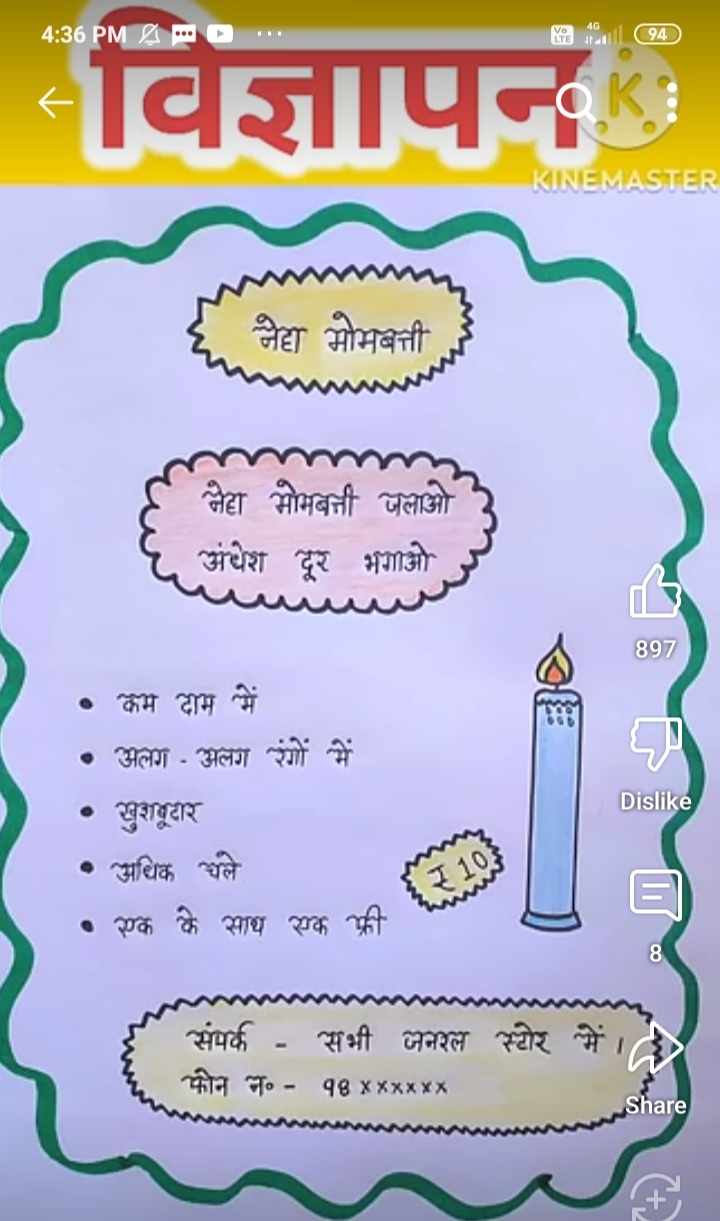 4:36 PM
Vo LTE 4G 94
विज्ञापन
K
KINEMASTER
नेहा मोमबत्ती
नेहा मोमबत्ती जलाओ
अंधेरा दूर भगाओ
897
• कम दाम में
• अलग - अलग रंगों में
Dislike
• खुशबूदार
• अधिक चले
₹ 10
• एक के साथ एक फ्री
8
संपर्क - सभी जनरल स्टोर में।
फोन न० - 98xxxxxx
Share